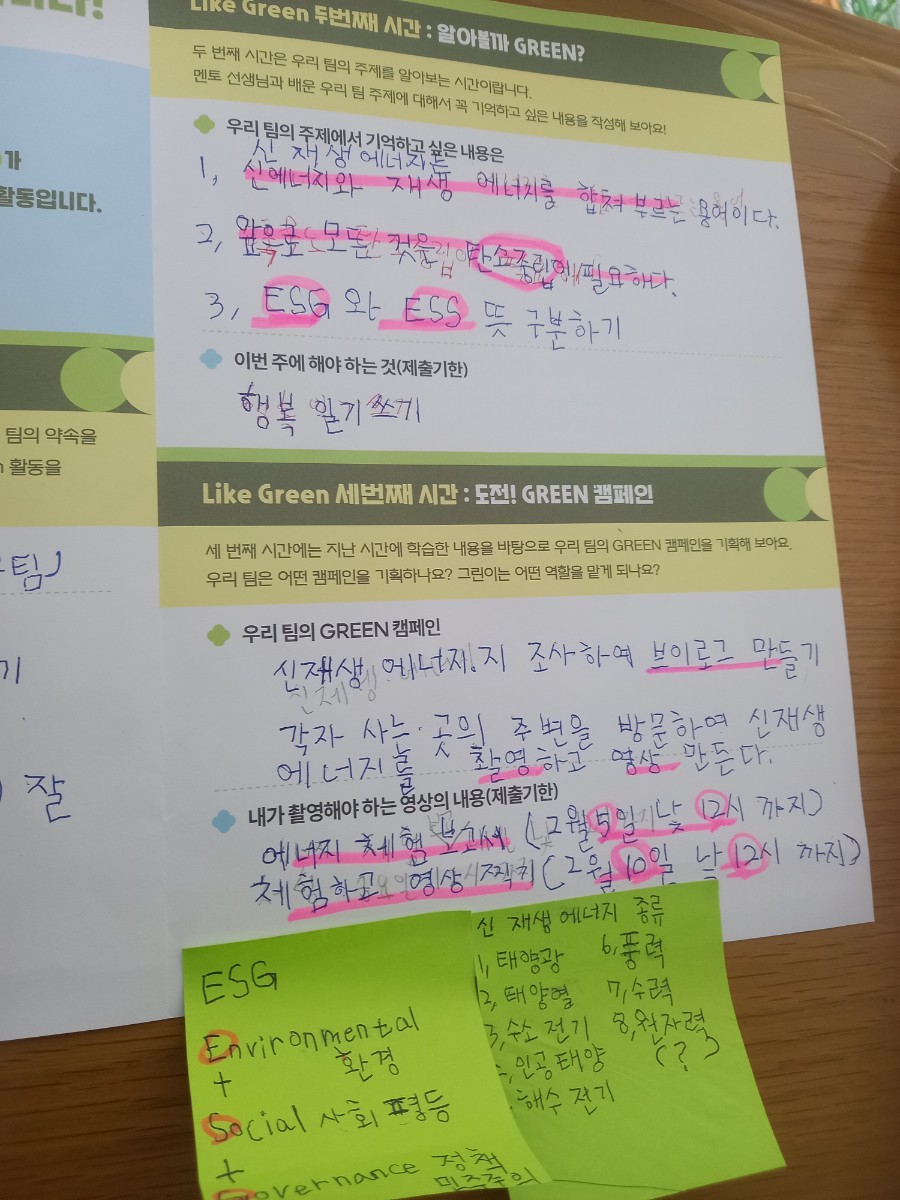 Like Green 두번째 시간 : 알아볼까 GREEN?
두 번째 시간은 우리 팀의 주제를 알아보는 시간이랍니다.
멘토 선생님과 배운 우리 팀 주제에 대해서 꼭 기억하고 싶은 내용을 작성해 보아요!
우리 팀의 주제에서 기억하고 싶은 내용은
신 재생 에너지는
1, 신에너지와 재생 에너지를 합쳐 부르는 용어이다.
2, 앞으로 모든 것은 탄소중립에 필요하다.
3, ESG 와 ESS 뜻 구분하기
이번 주에 해야 하는 것(제출기한)
행복 일기 쓰기
Like Green 세번째 시간 : 도전! GREEN 캠페인
세 번째 시간에는 지난 시간에 학습한 내용을 바탕으로 우리 팀의 GREEN 캠페인을 기획해 보아요.
우리 팀은 어떤 캠페인을 기획하나요? 그린이는 어떤 역할을 맡게 되나요?
우리 팀의 GREEN 캠페인
신재생 에너지 조사하여 브이로그 만들기
각자 사는 곳의 주변을 방문하여 신재생
에너지를 촬영하고 영상 만든다.
내가 촬영해야 하는 영상의 내용(제출기한)
에너지 체험 보고서 (2월 5일 낮 12시 까지)
체험하고 영상 제작 (2월 10일 낮 12시 까지)
가
활동입니다.
팀의 약속을
활동을
팀)
기
잘
ESG
Environmental
+ 환경
Social 사회 평등
+
Governance 정책
민주주의
신 재생 에너지 종류
1, 태양광 6, 풍력
2, 태양열 7, 수력
3, 수소 전기 8, 원자력
인공태양 (?)
해수 전기